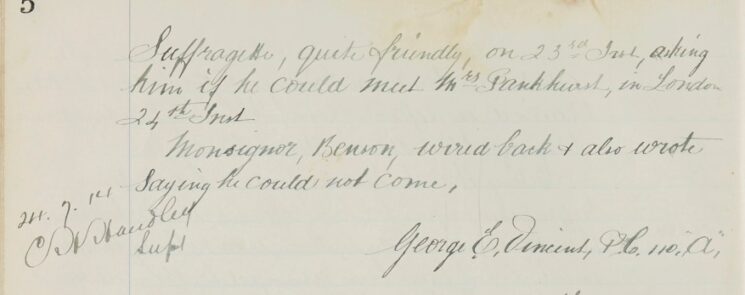 5
Suffragette, quite friendly, on 23rd Inst, asking
him if he could meet Mrs Pankhurst, in London
24th Inst
Monsignor, Benson, wired back & also wrote
Saying he could not come,
24. 7. 14
Handley
Supt
George E. Vincent, P.C. no. "A",